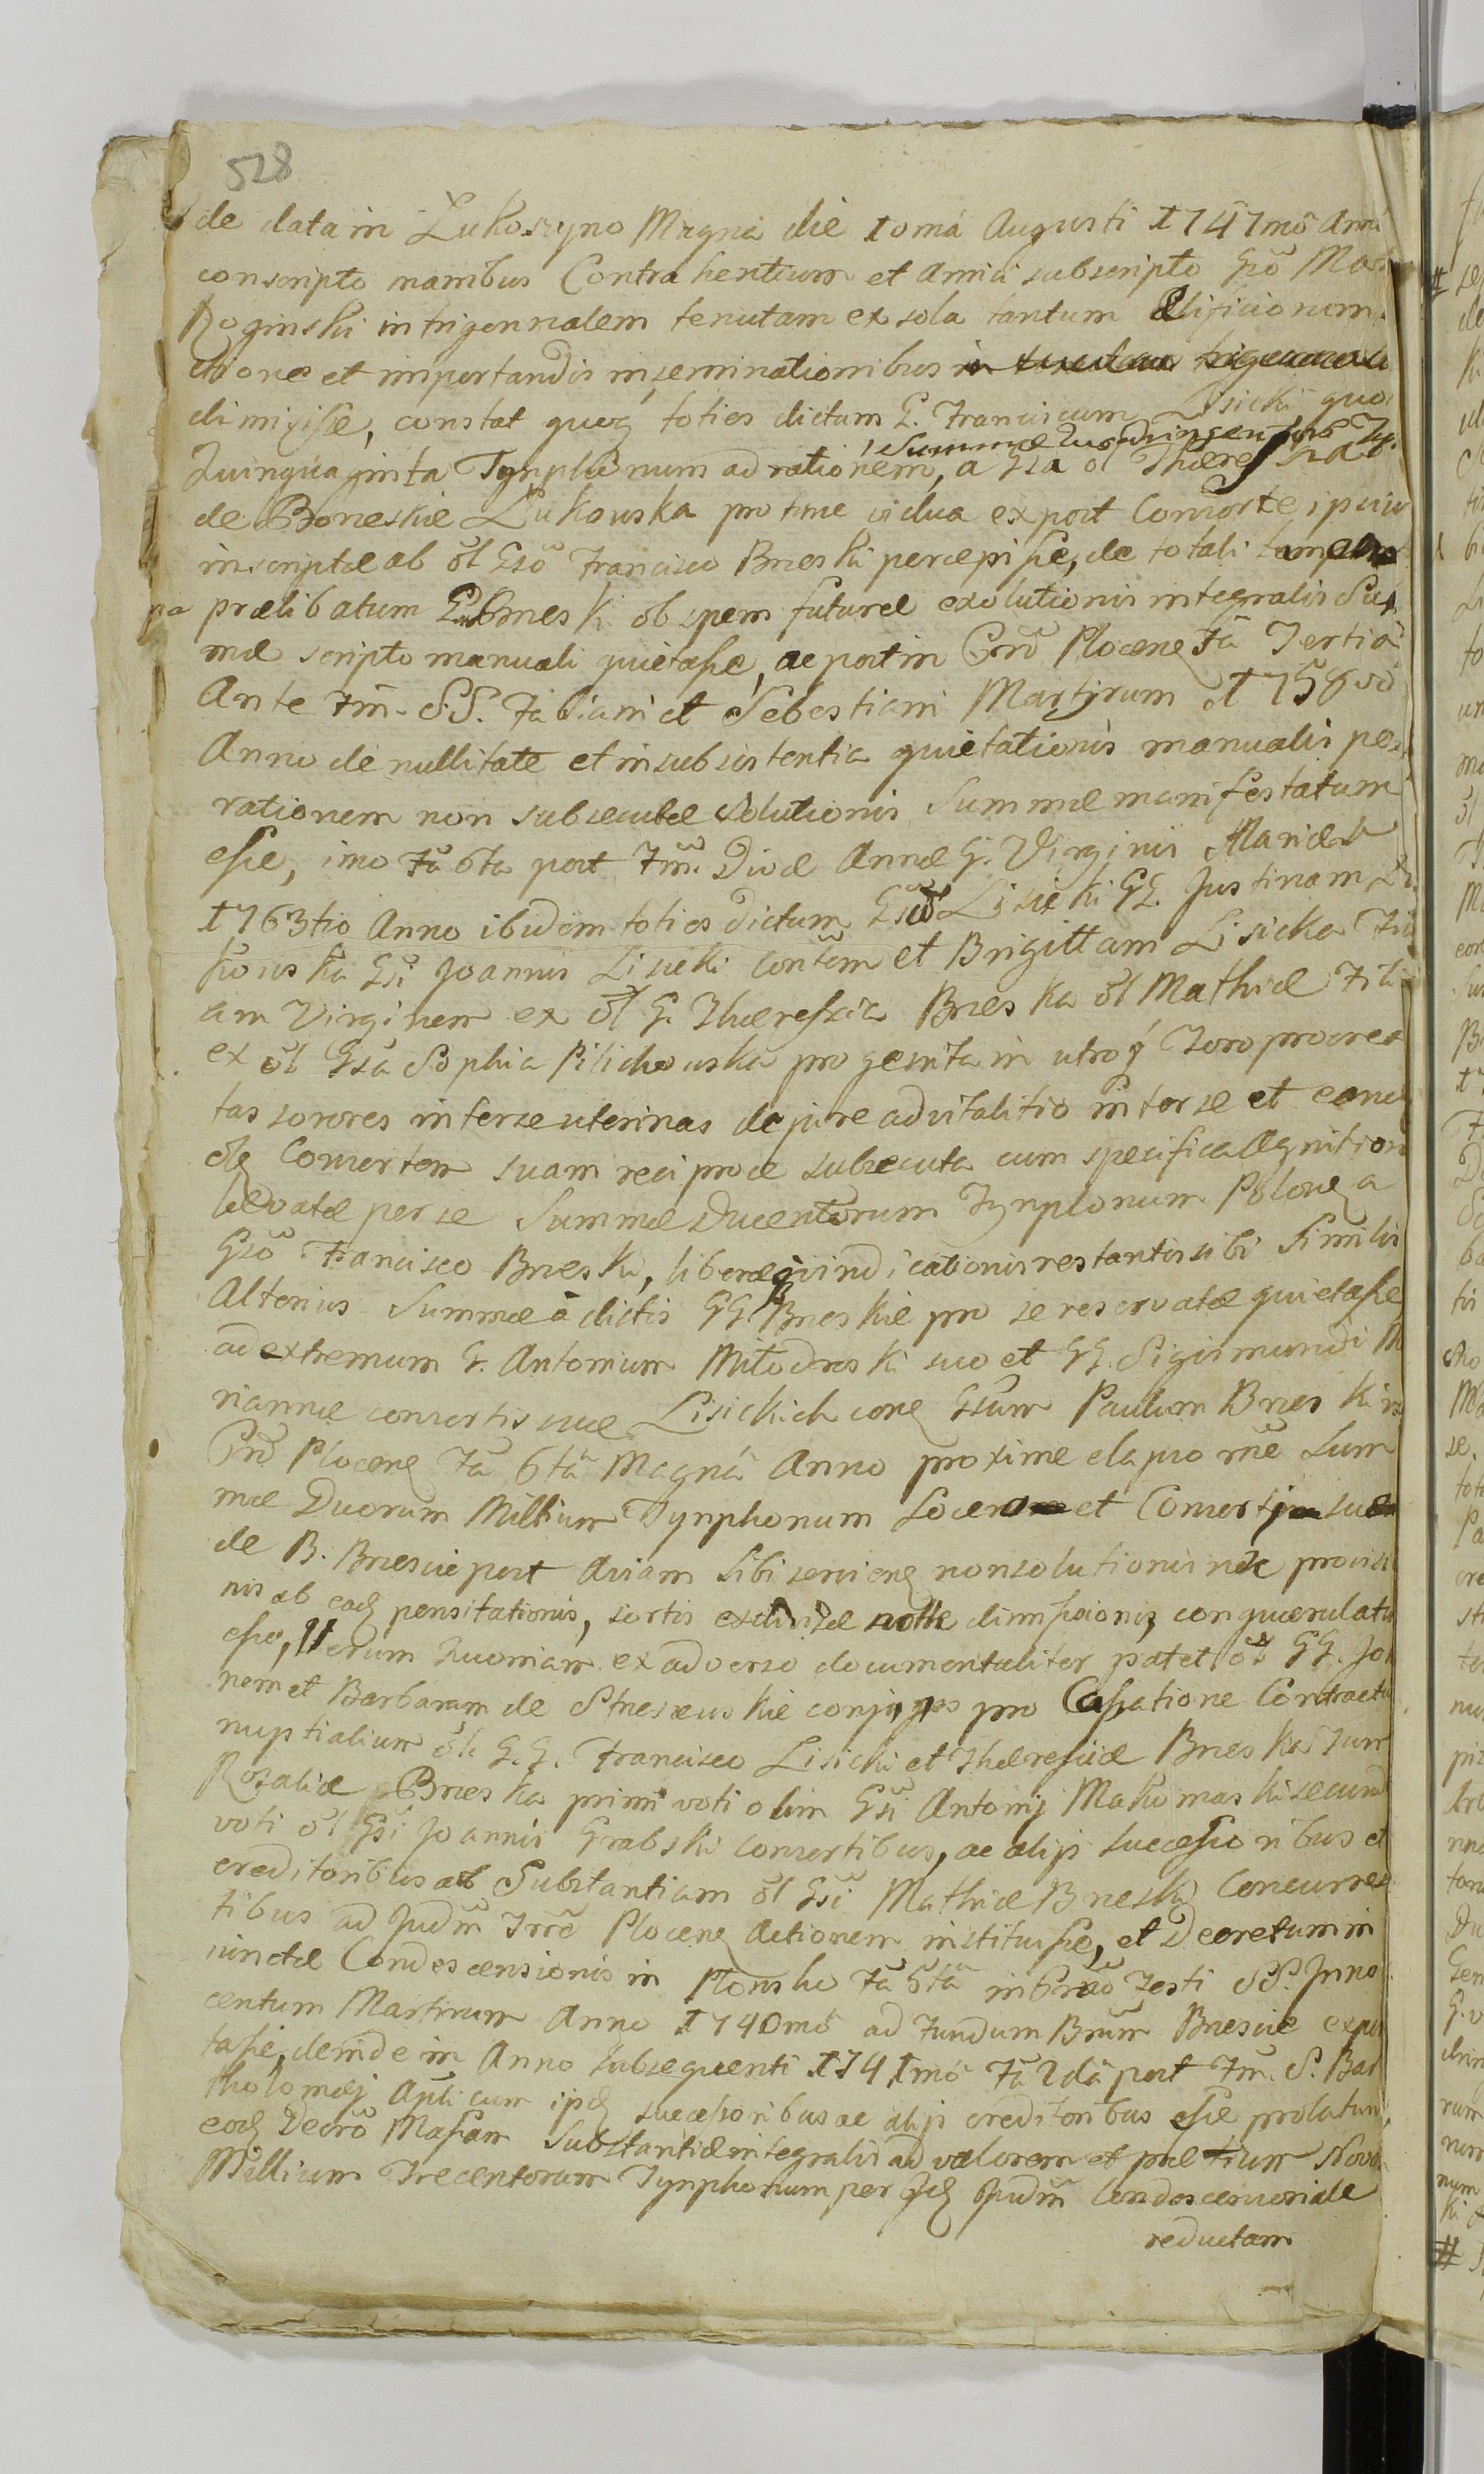 528
de data in Lukoszyno Magna die 1oma Augusti 1747mo Anni
conscripto manibus Contrahentium et Amici subscripto Gso
Roginski in trigennalem tenutam ex sola tantum
et importandis inseminationibus
dimisisse, constat quoq toties dictum G. Franciscum Lisicki quo
Summæ Quadringentorum Ty.
Quinquaginta Tynphonum ad rationem, a Gsa ol
de Brzeskie Lukowska pro tunc vidua ex post Consorte ipsius
inscriptæ ab ol Gso Francisco Brzeski percepisse, de totali tamen
prælibatum Brzeski ob spem futuræ exolutionis integralis Sum
mæ scripto manuali quietasse, ac post in Cnd Plocenq Fa Tertia
Ante Fm. S.S. Fabiani et Sebestiani Martyrum 1758vo
Anno de nullitate et insubsistentia quietationis manualis per
rationem non subsecutæ solutionis Summæ manifestatum
esse, imo Fa 6ta post Fm. Divæ Annæ G. Virginis Mariæ
1763tio Anno ibidem toties dictum Gsum Lisicki GG. Justinam Lu
kowska Gsi Joannis Lisicki contem et Brigittam Lisicka Fili
am Virginem ex ol G. Theressia Brzeska ol Mathiæ Filia
ex ol Gsa Sophia Pilichowska progenita in utroq Toro procrea
tas sorores inter se uterinas de jure advitalitio inter se et eand
olq Consortem suam reciproce subsecuta cum specifica Agnitione
levatæ per se Summæ Ducentorum Tynphonum Polonq a
Gso Francisco Brzeski, liberæq vindicationis restantis sibi similis
Alterius Summæ a dictis GG. Brzeskie pro se reservatæ quietasse
ad extremum G. Antonium Milodroski suo et GG. Sigismundi Ma
riannæ consortis suæ Lisickich conq Gsum Paulum Brzeski in
Cnd Plocenq Fa 6ta Magna Anno proxime elapso rne Sum
mæ Duorum Millium Tynphonum Socero et Consorti suæ
de B. Brzescie post Aviam sibi servienq non solutionis nec provisio
nis ab eadq pensitationis, sortis exdivisæ dimissionis, conquærulatum
esse, Verum Quoniam ex adverso documentaliter patet ol GG. Jo
nem et Barbaram de Strzeszewskie conjuges pro Cassatione Contractu
nuptialium ol. G.G. Francisco Lisicki et Theressiæ Brzeska Tum
Rozaliæ Brzeska primi voti olim Gsi Antonij Makomaski secund
voti ol Gsi Joannis Grabski consortibus, ac alijs successoribus et
creditoribus ab Substantiam ol Gsi Mathiæ Brzeski Concurren
tibus ad Judm Trrd Plocenq Actionem instituisse, et Decretum in
vinctæ Condescensionis in Plonsko Fa 6ta in Festi SS. Inno
centum Martirum Anno 1740mo ad Fundum Bnrm Brzescie expor
tasse, deinde in Anno subsequenti 1741mo Fa 2da post Fm. S. Bar
tholomæj Apli cum ipsq successoribus ac alijs creditoribus esse prolatum,
eodq Decro Massam Substantiæ integralis ad valorem et prætium Novem
Millium Trecentorum Tynphonum per Idq Judm Condescensoriale
reductam